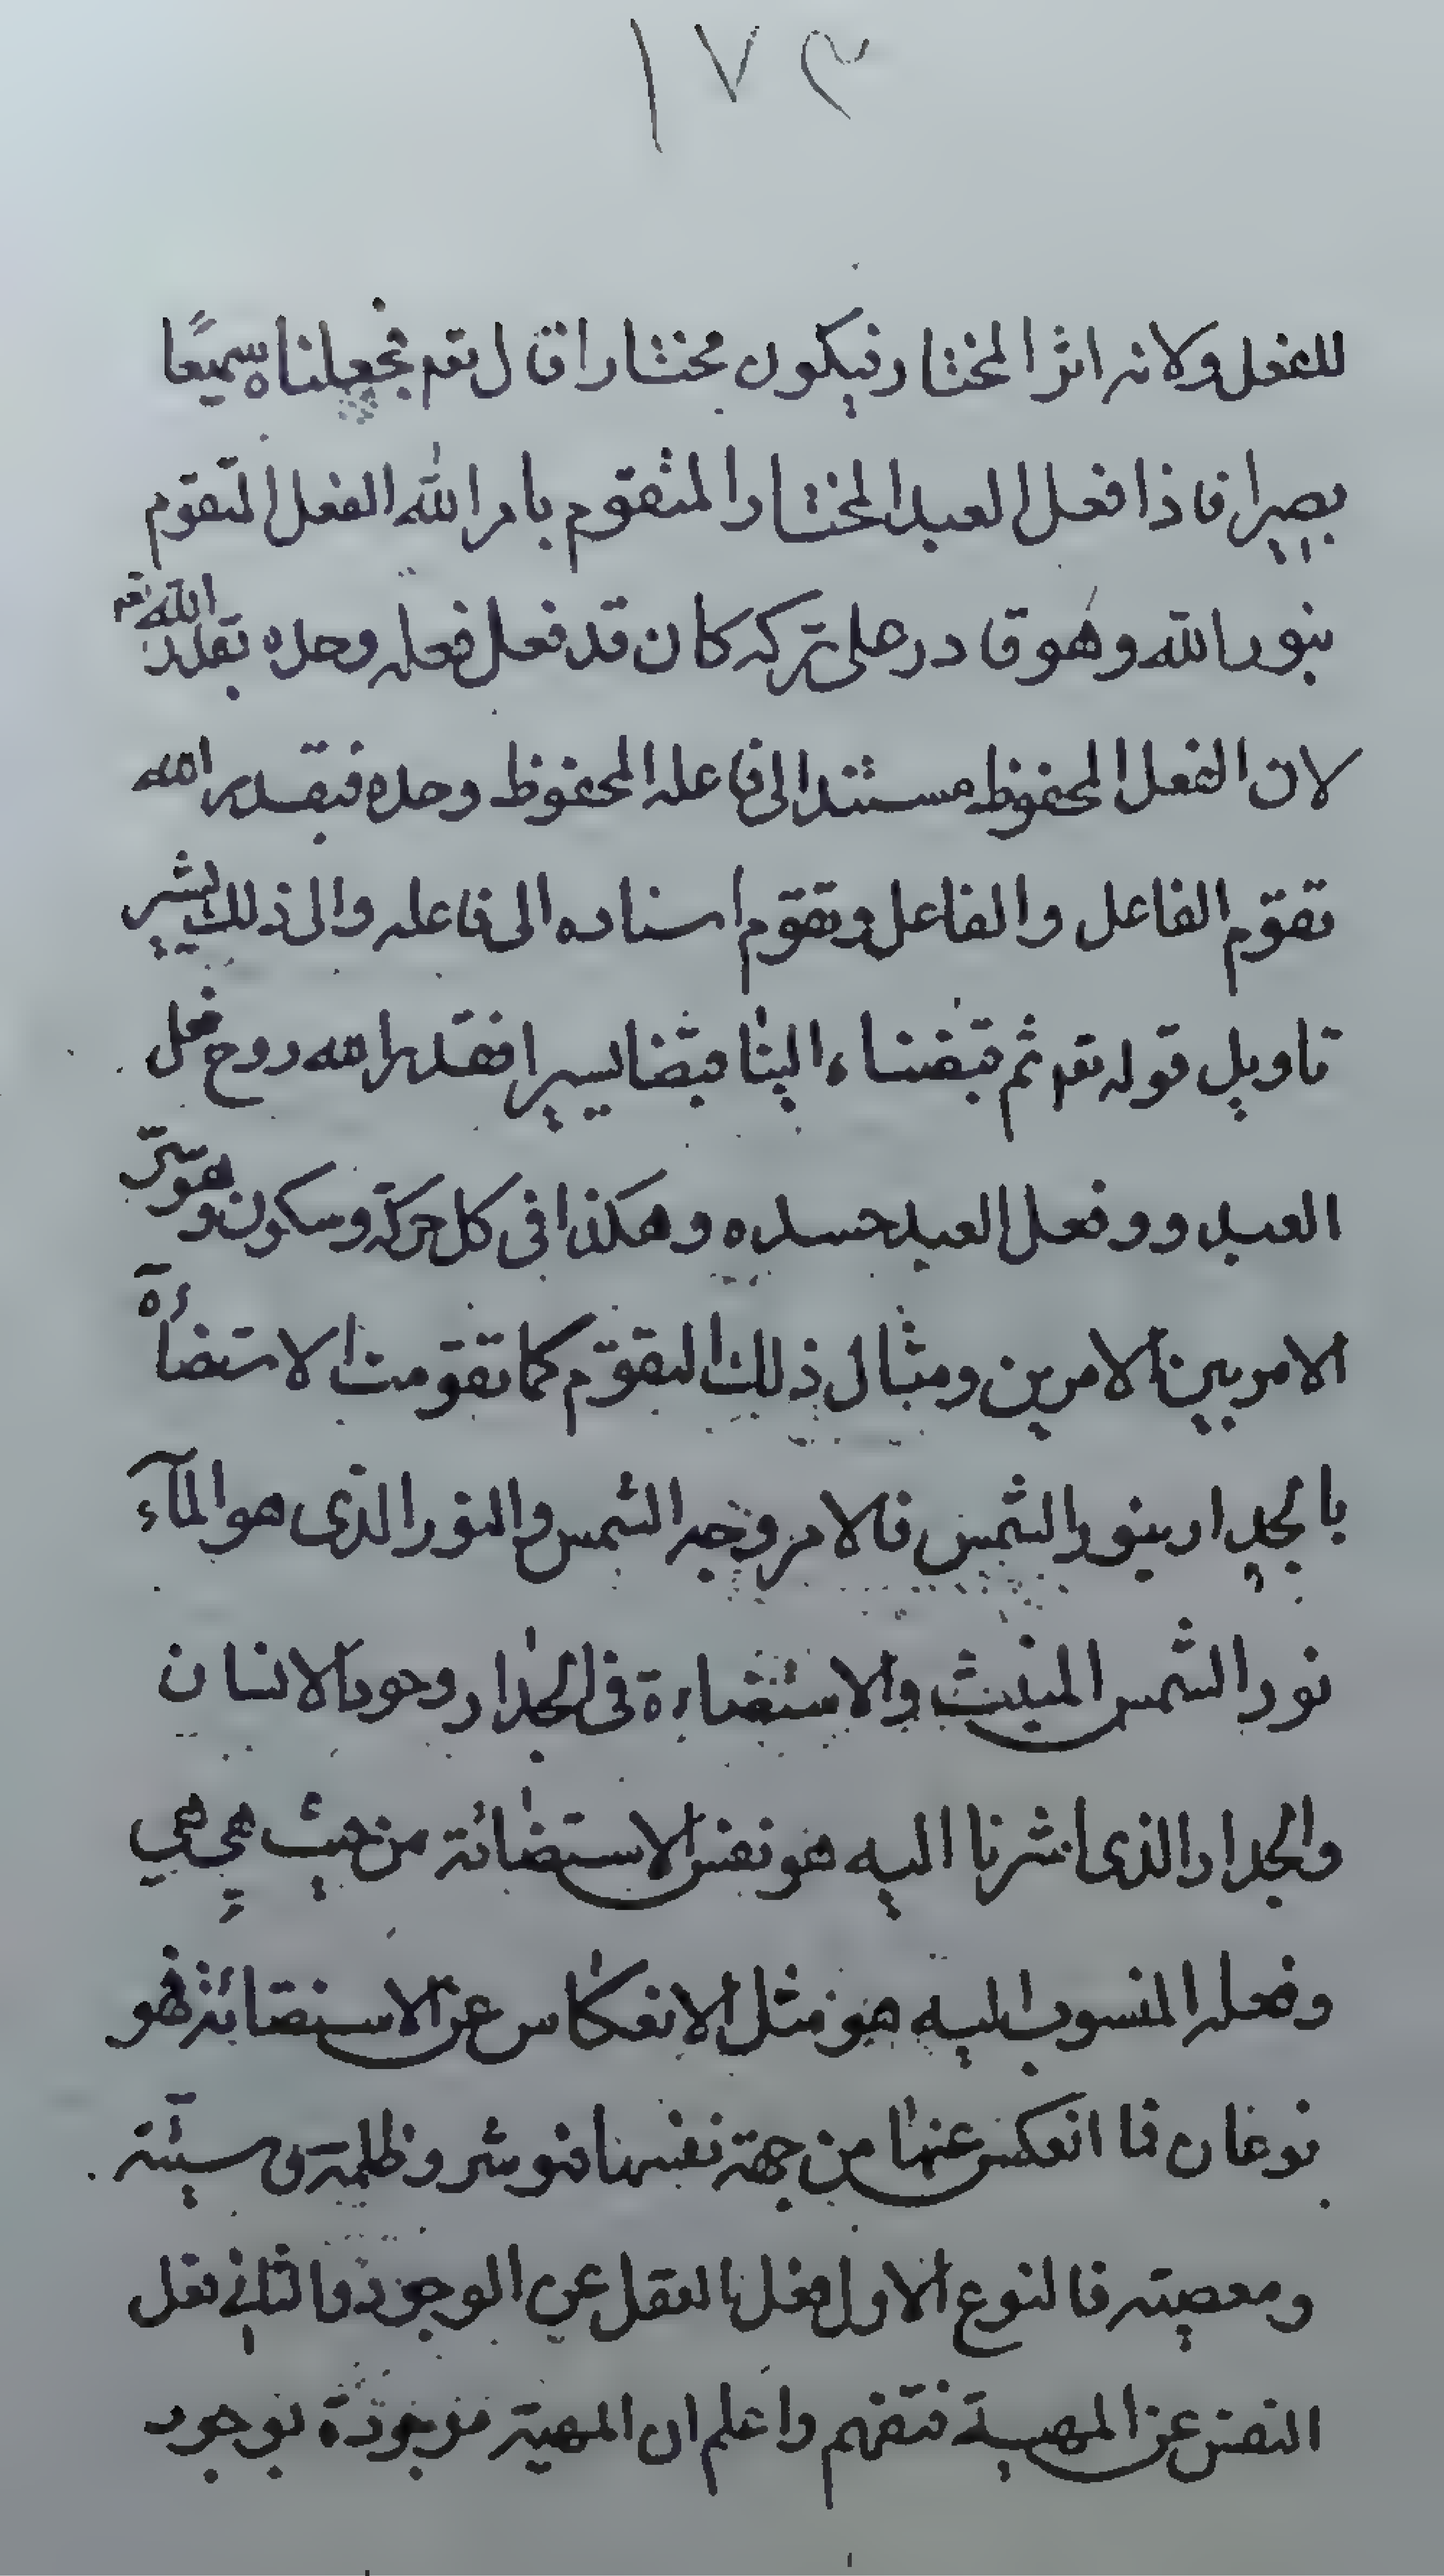 ١٧٣
للفعل ولانه اثر المختار فيكون مختارا قال تعم فجعلناه سميعًا
بصيرا فاذا فعل العبد المختار المتقوم بامر الله الفعل المتقوم
بنور الله وهو قادر على تركه كان قد فعل فعله وحده بقدر الله تعم
لان الفعل المحفوظ مستندا الى فاعله المحفوظ وحده فبقدر الله
تقوم الفاعل والفاعل وتقوم اسناده الى فاعله والى ذلك يشير
تاويل قوله تعم ثم قبضناه الينا قبضا يسيرا فقدر الله روح فعل
العبد وفعل العبد جسده وهكذا في كل حركة وسكون وهو سرّ
الامر بين الامرين ومثال ذلك التقوّم كما تقومت الاستضائة
بالجدار بنور الشمس فالامر وجه الشمس والنور الذى هو المآء
نور الشمس المنبث والاستضاءة فى الجدار وجود الانسان
والجدار الذى اشرنا اليه هو نفس الاستضائة من حيث هي هي
وفعله المنسوب اليه هو مثل الانعكاس عن الاستضائة فهو
نوعان فما انعكس عنها من جهة نفسها فهو شر وظلمة وسيئة
ومعصية فالنوع الاول فعل العقل عن الوجود والثانى فعل
النفس عن المهية فتفهم واعلم ان المهية موجودة بوجود